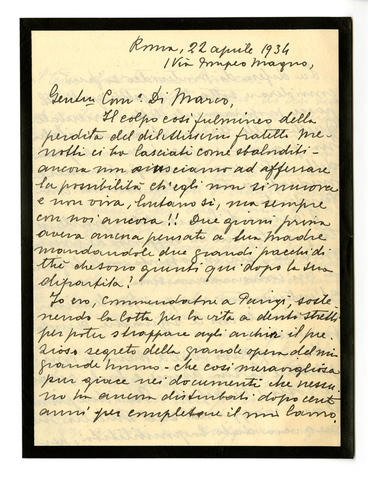 Roma, 22 aprile 1934
1 Via Pompeo Magno,
Comm. Di Marco,
Il colpo così fulmineo della
perdita del dilettissimo fratello Me-
notti ci ha lasciati come sbalorditi-
ancora non riusciamo ad afferrare
la possibilità ch'egli non si muova
e non viva, lontano sì, ma sempre
con noi ancora!! Due giorni prima
aveva ancora pensato a sua madre
mandandole due grandi pacchi di
thè che sono giunti qui dopo la sua
dipartita!
Io ero, commendatore a Parigi, soste
nendo la lotta per la vita a denti stretti
per poter strappare agli archivi il pre
zioso segreto della grande opera del mio
grande - che così meravigliosa
pur giace nei documenti che nessu
no ha ancora disturbati dopo cent
anni per completare il mio lavoro,